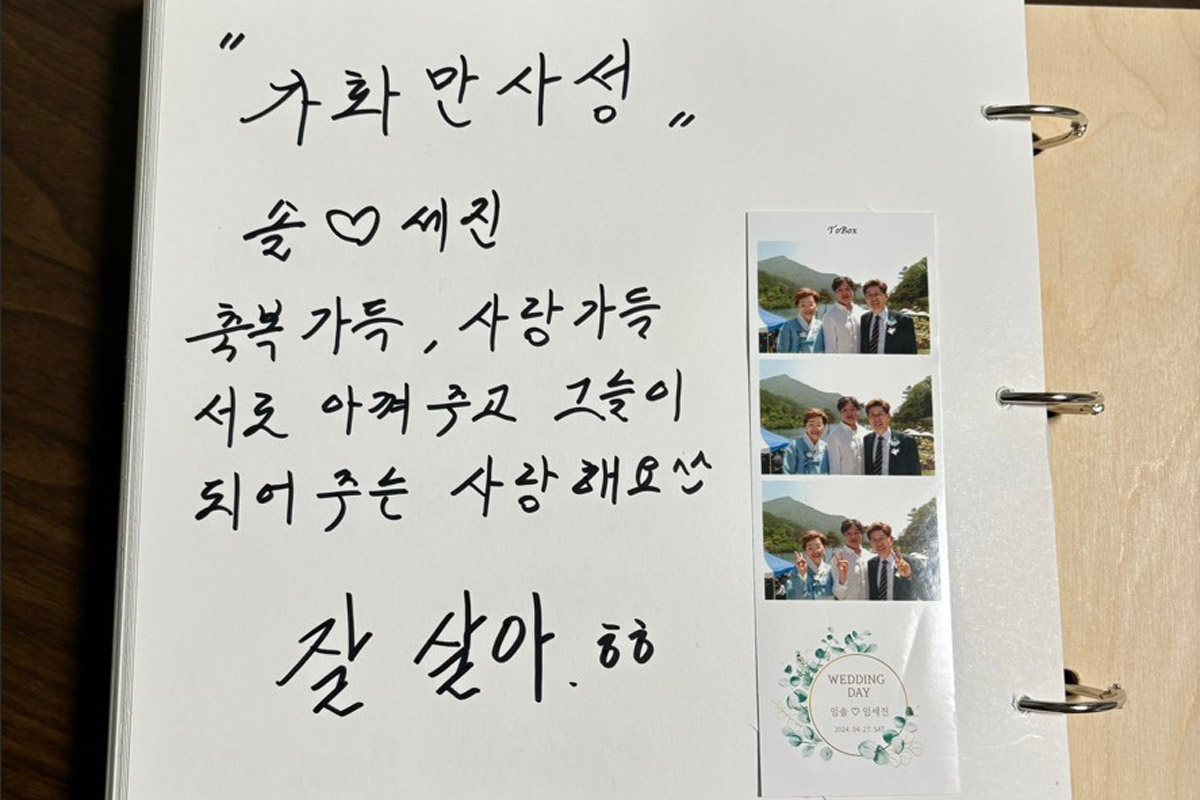 "가화만사성"
솔♡세진
축복가득, 사랑가득
서로 아껴주고 그늘이
되어 주는 사랑해요^^
잘 살아. ㅎㅎ
ToBox
WEDDING
DAY
임솔 ♡ 엄세진
2024. 04. 27. SAT